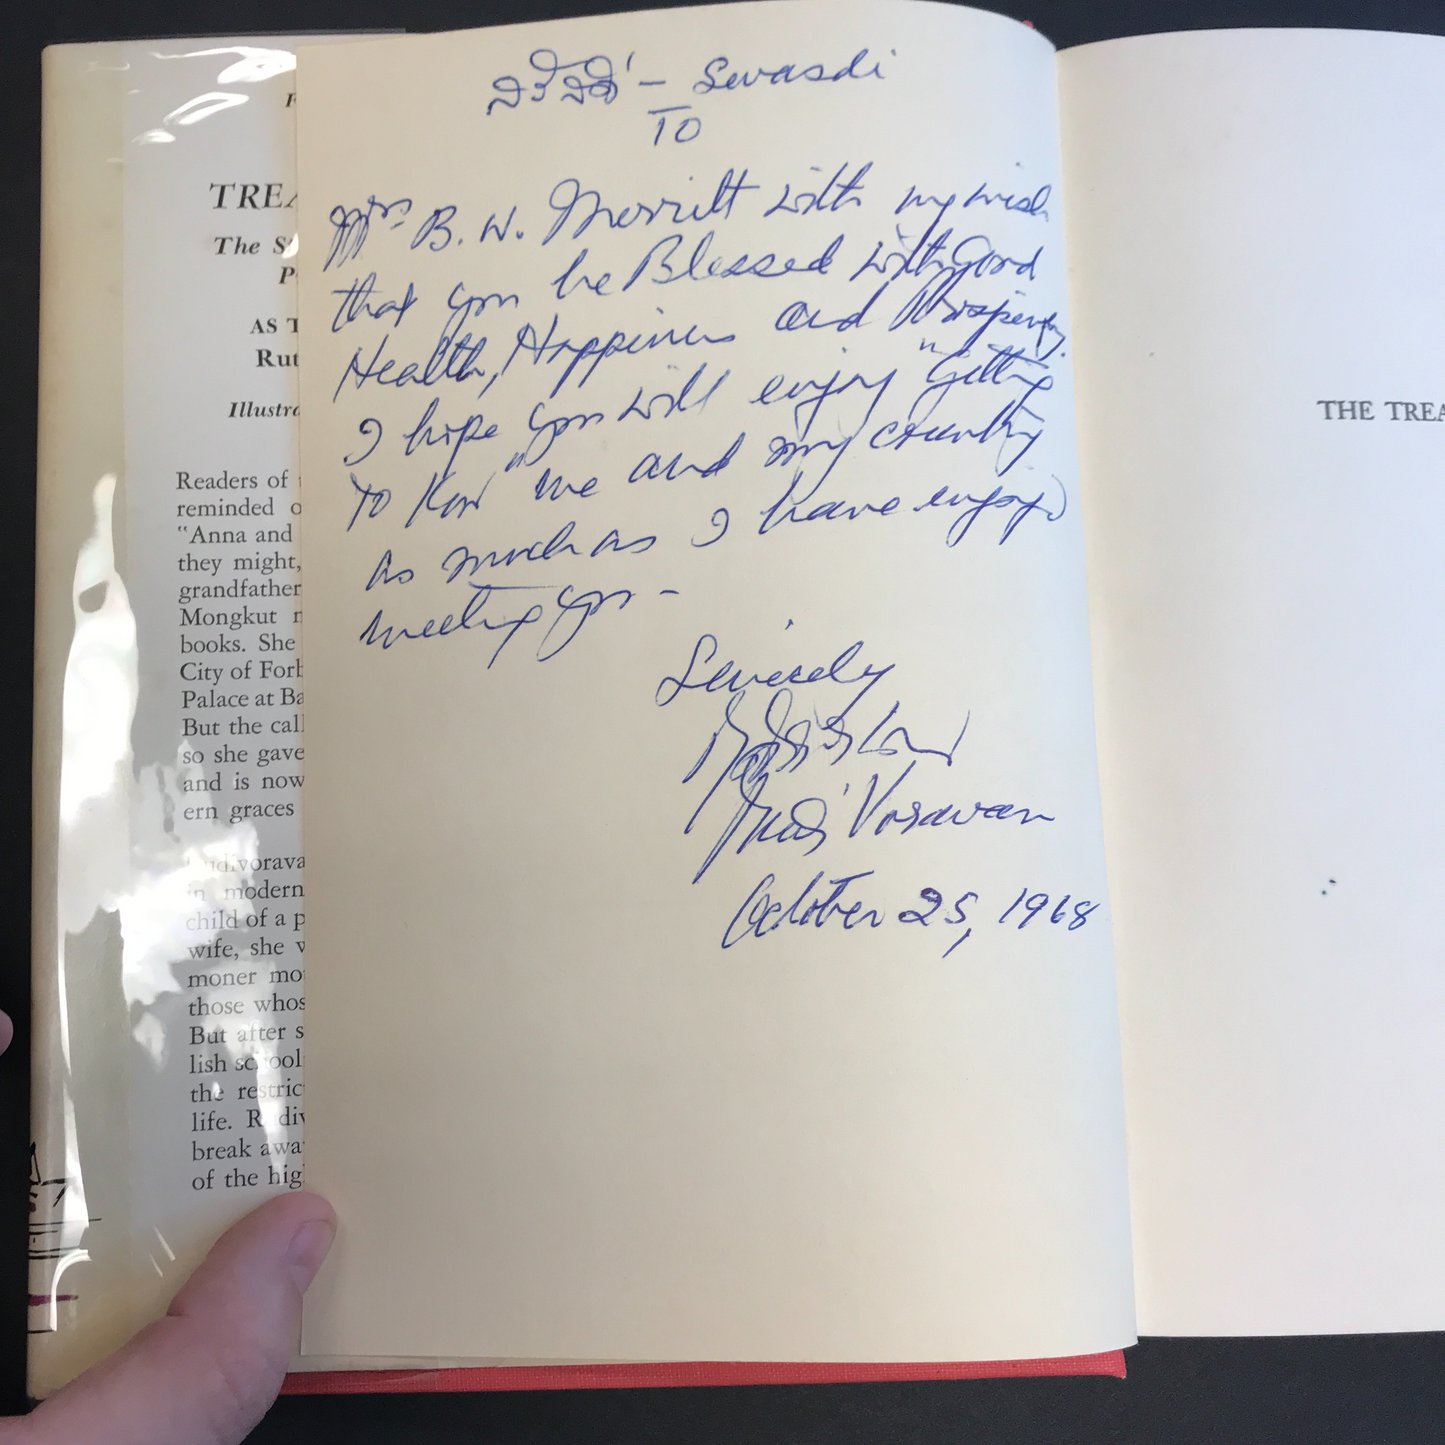 สวัสดี - Sewasdi
TO
Mrs. B. W. Merritt with my wish
that you be Blessed with Good
Health, Happiness and Prosperity.
I hope you will enjoy "Getting
to know" me and my country
as much as I have enjoyed
meeting you -
Sincerely
Vorawan
October 25, 1968
TREA
The S
P
AS T
Rut
Illustra
Readers of
reminded o
"Anna and
they might,
grandfather
Mongkut
books. She
City of Forb
Palace at Ba
But the call
so she gave
and is now
ern graces
udivorava
in modern
child of a p
wife, she
moner mo
those whos
But after s
lish school
the restric
life. Rudiv
break awa
of the hig
THE TREA